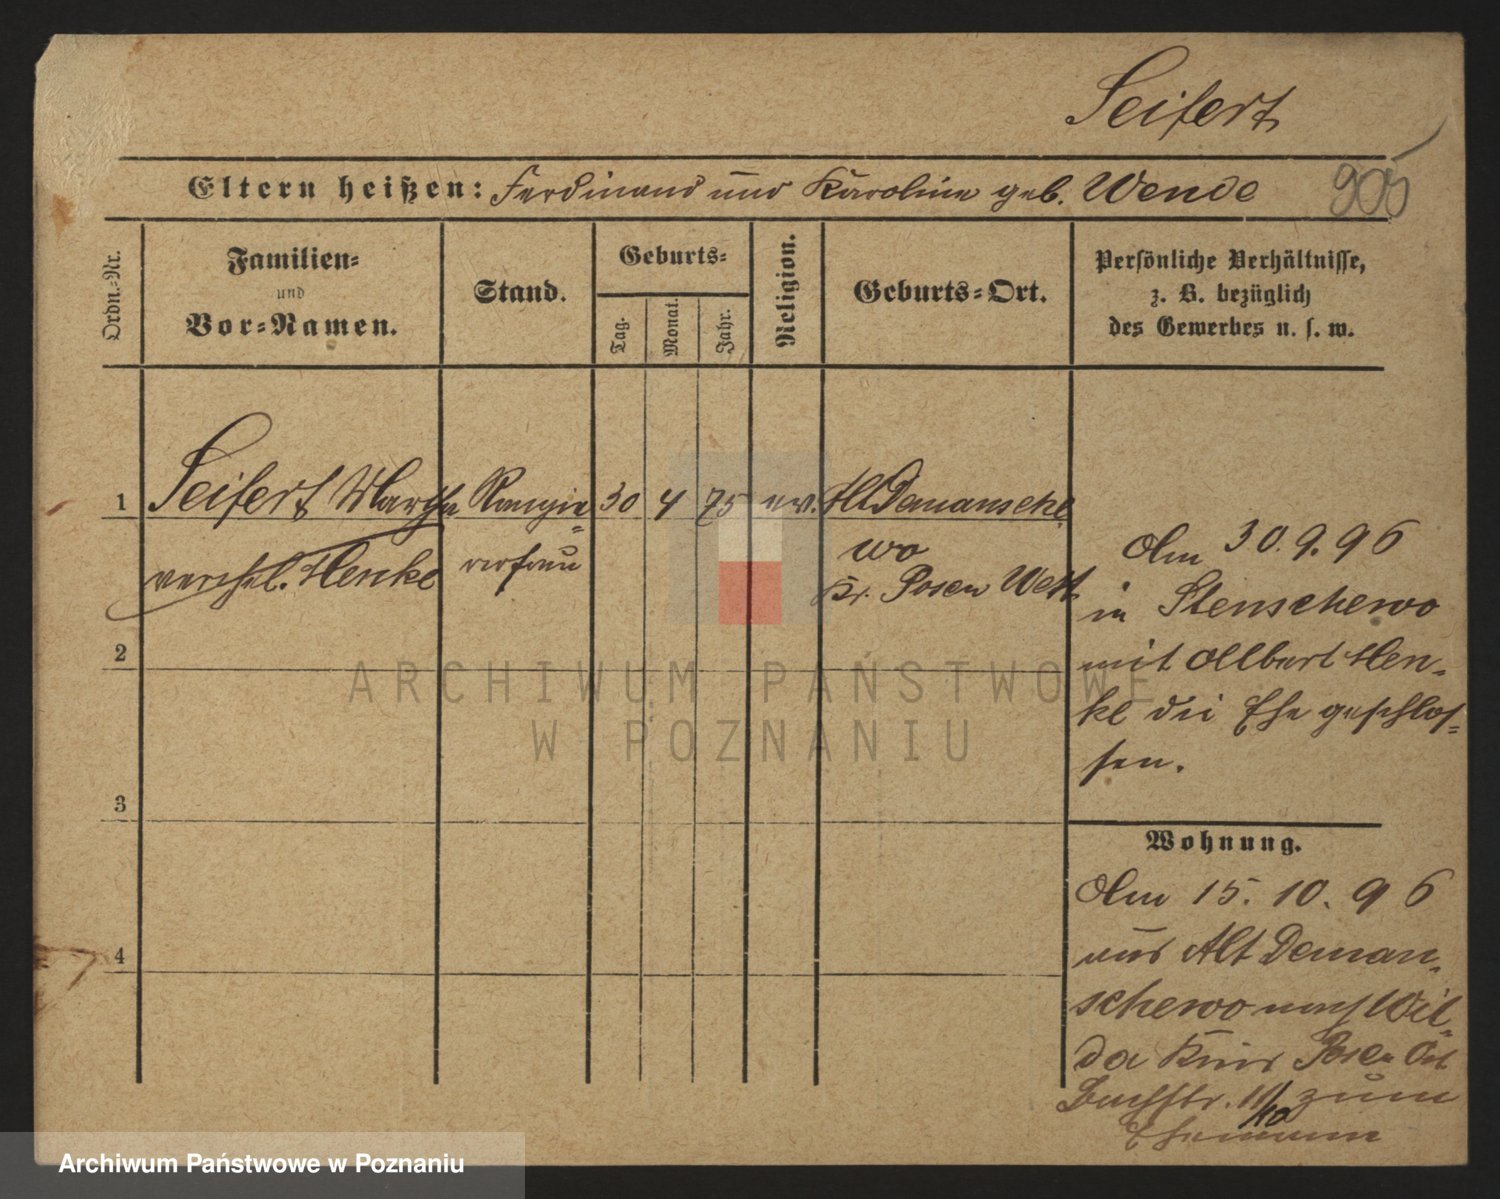 Seifert
Eltern heißen: Ferdinand und Karoline geb. Wende
905
Ordn.-Nr.
Familien-
und
Vor-Namen.
Stand.
Geburts-
Tag.
Monat.
Jahr.
Religion.
Geburts-Ort.
Persönliche Verhältnisse,
z. B. bezüglich
des Gewerbes u. s. w.
1 Seifert Martha Rangie- 30 4 75 ev. Alt Demansche
verehel. Henke rerfrau wo
Kr. Posen West
Am 30.9.96
in Stenschewo
mit Albert Hen-
ke die Ehe geschlos-
sen.
2
3
4
Wohnung.
Am 15. 10. 96
aus Alt Deman-
schewo nach Wil-
da Kreis Posen Ost
Bachstr. 10 zum
Ehemann
ARCHIWUM PAŃSTWOWE
W POZNANIU
Archiwum Państwowe w Poznaniu